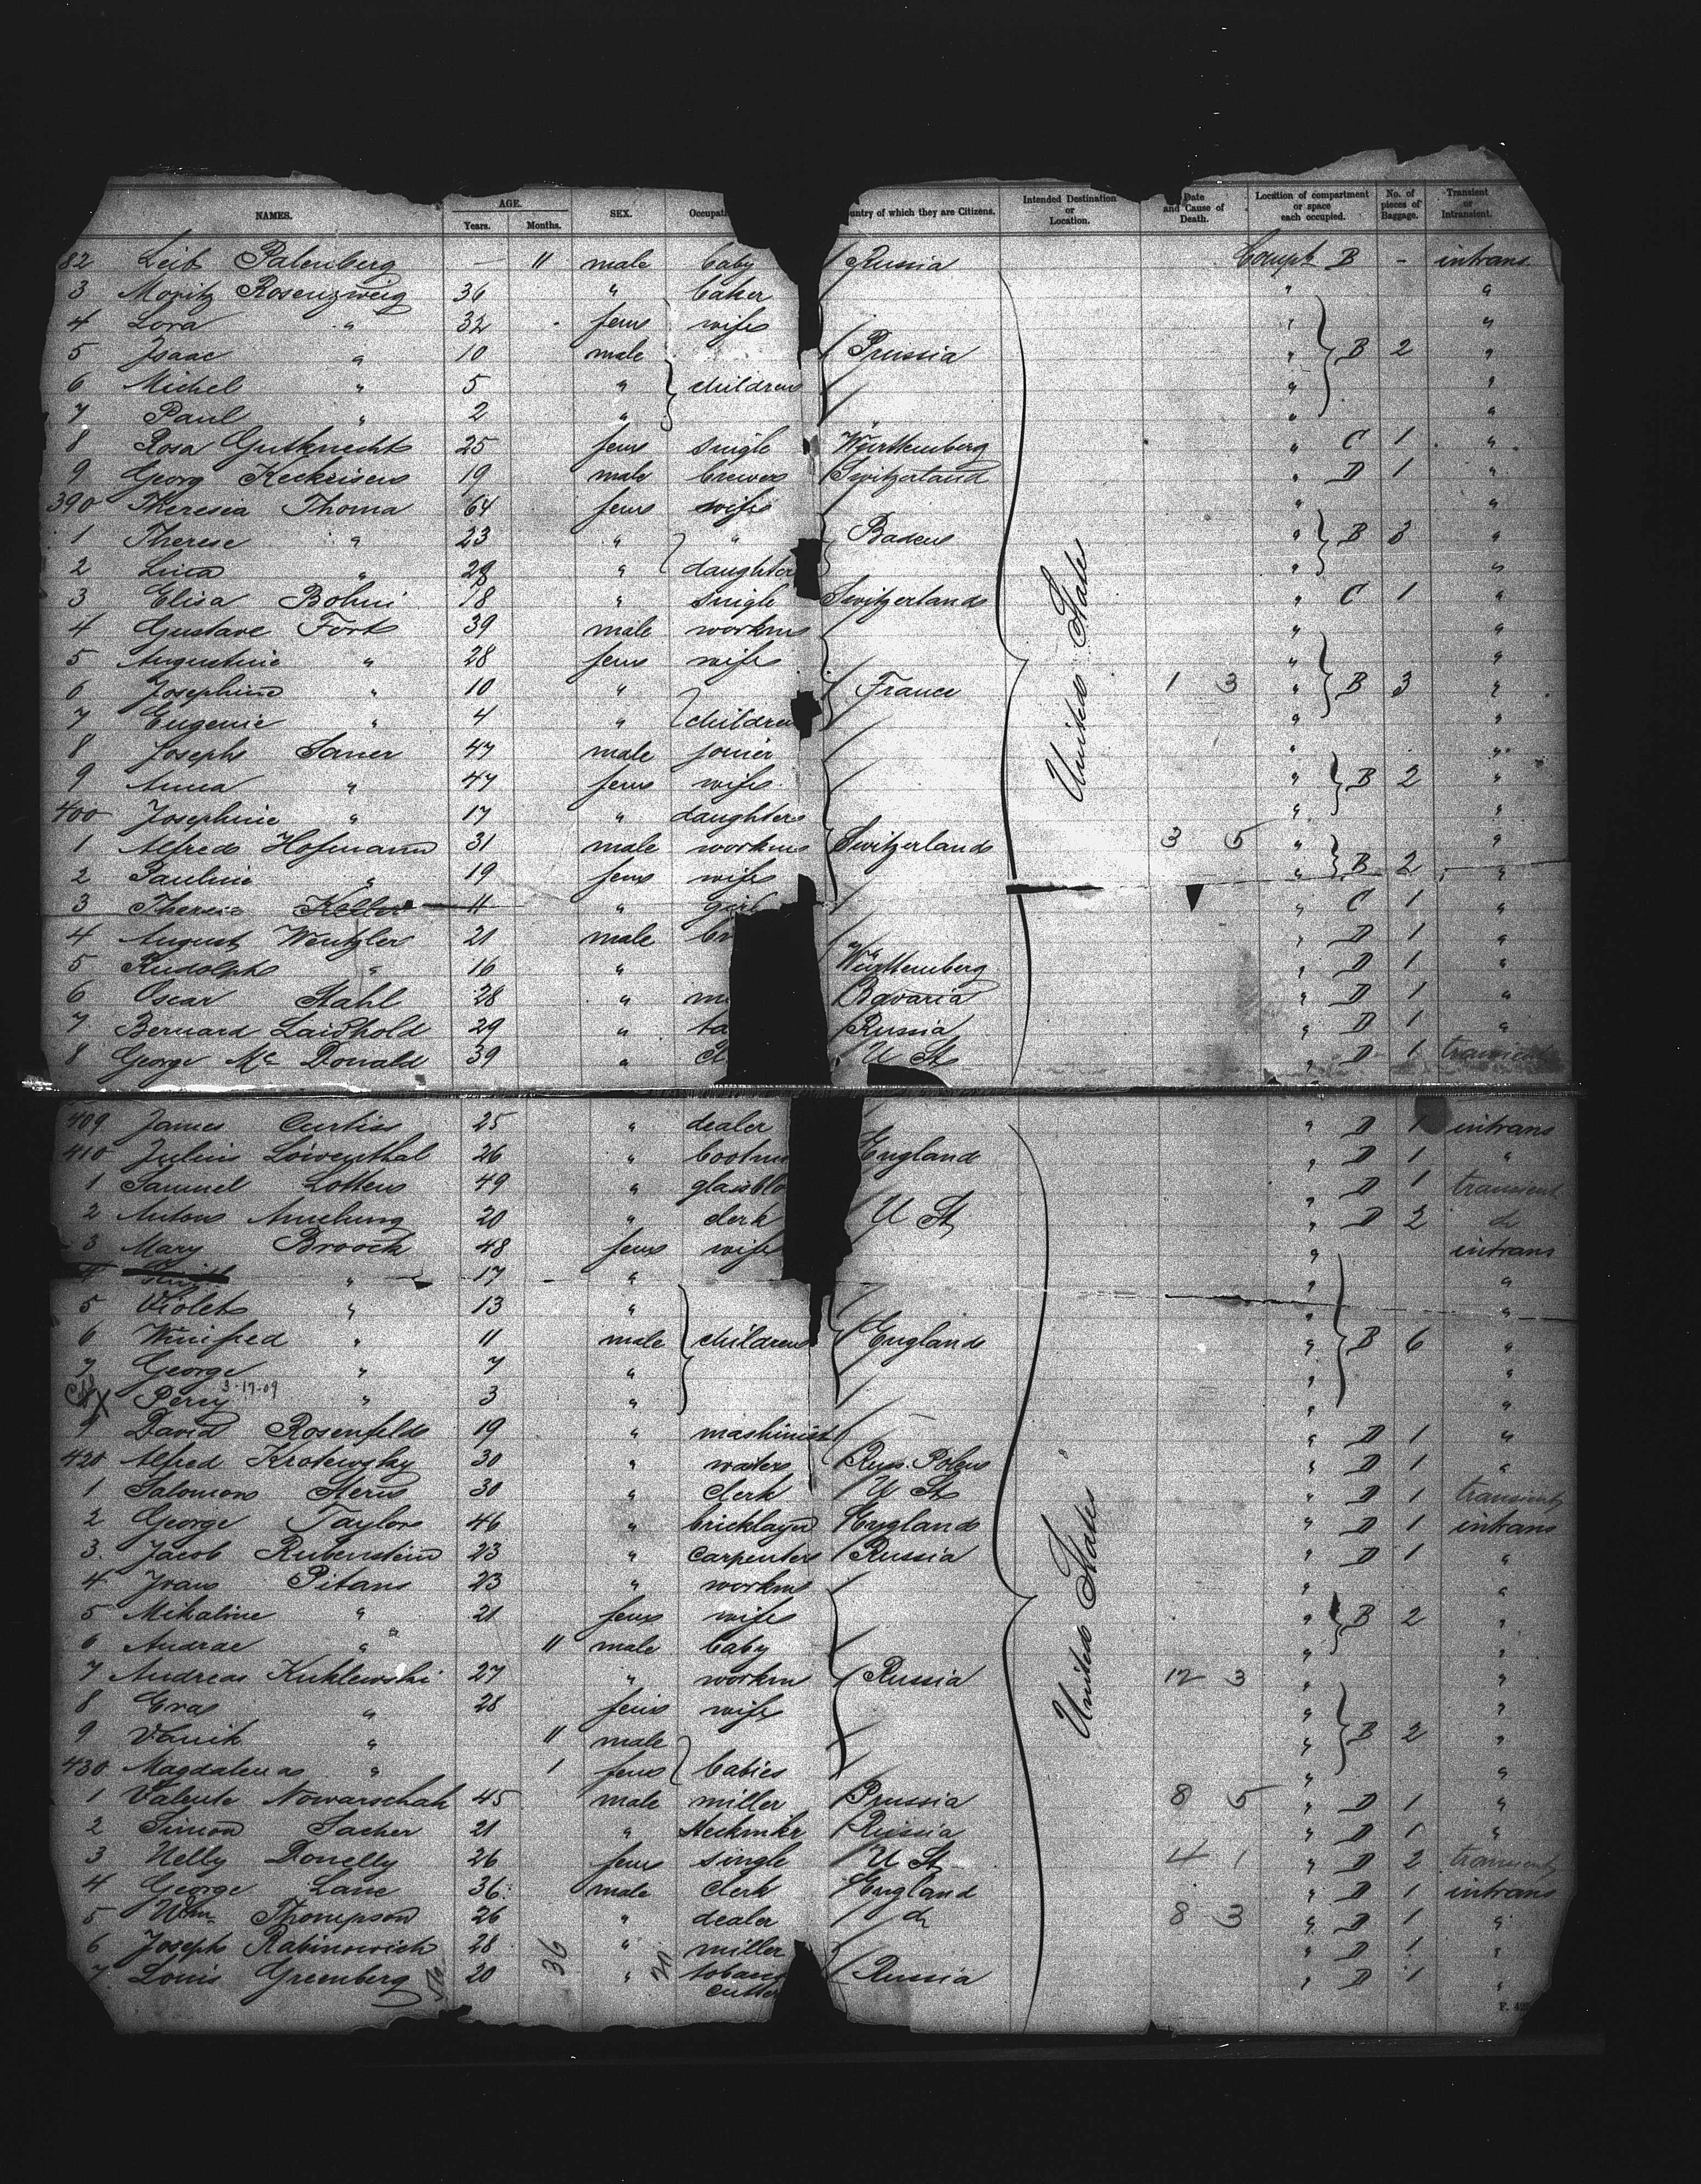 NAMES. AGE. Years. Months. SEX. Occupat untry of which they are Citizens. Intended Destination or Location. Date and Cause of Death. Location of compartment or space each occupied. No. of pieces of Baggage. Transient or Intransient.
82 Leib Palenberg — 11 male baby Russia Compt B - intrans
3 Moritz Rosenzweig 36 " baker " "
4 Lora " 32 fem wife " "
5 Isaac " 10 male Prussia " B 2 "
6 Michel " 5 " children " "
7 Paul " 2 " " "
8 Rosa Gutknecht 25 fem single Württemberg " C 1 "
9 Georg Keckeisen 19 male brewer Switzerland " D 1 "
390 Theresia Thoma 64 fem wife " "
1 Therese " 23 " " Baden " B 3 "
2 Lina " 29 " daughter " "
3 Elisa Bohni 18 " single Switzerland " C 1 "
4 Gustave Fort 39 male workm " "
5 Augustine " 28 fem wife " "
6 Josephine " 10 " France 1 3 " B 3 "
7 Eugenie " 4 " children " "
8 Joseph Saner 47 male joiner " "
9 Anna " 47 fem wife " B 2 "
400 Josephine " 17 " daughter " "
1 Alfred Hofmann 31 male workm Switzerland 3 5 " "
2 Pauline " 19 fem wife " B 2 "
3 Theresie Keller 11 " girl " C 1 "
4 August Wentzler 21 male br " D 1 "
5 Rudolph " 16 " Württemberg " D 1 "
6 Oscar Stahl 28 " m Bavaria " D 1 "
7 Bernard Laidhold 29 " ta Russia " D 1 "
8 George Mc Donald 39 " cl U St " D 1 transient
United States
409 James Curtiss 25 " dealer " D 1 intrans
410 Julius Löwenthal 26 " bootm England " D 1 "
1 Samuel Lotten 49 " glassblo " D 1 transient
2 Anton Amelung 20 " clerk U St " D 2 do
3 Mary Broock 48 fem wife " intrans
4 " 17 " " "
5 Violet " 13 " " "
6 Winifred " 11 male children England " B 6 "
7 George " 7 " " "
X Percy 3-17-09 " 3 " " "
9 David Rosenfeld 19 " mashinist " D 1 "
420 Alfred Krotewsky 30 " waiter Russ. Polen " D 1 "
1 Salomon Stern 30 " clerk U St " D 1 transient
2 George Taylor 46 " bricklayer England " D 1 intrans
3. Jacob Rubenstein 23 " carpenter Russia " D 1 "
4 Ivan Pitans 23 " workm " "
5 Mikaline " 21 fem wife " B 2 "
6 Andrae " 11 male baby " "
7 Andreas Kuklewski 27 " workm Russia 12 3 " "
8 Eva " 28 fem wife " "
9 " 11 male " B 2 "
430 Magdalena " 1 fem babies " "
1 Valente Nowarschak 45 male miller Prussia 8 5 " D 1 "
2 Simon Sacher 21 " Russia " D 1 "
3 Nelly Donelly 26 fem single U St 4 1 " D 2 transient
4 George Lane 36 male clerk England " D 1 intrans
5 Wm. Thompson 26 " dealer do 8 3 " D 1 "
6 Joseph Rabinowich 28 " miller " D 1 "
7 Louis Greenberg 20 " tobacco cutter Russia " D 1 "
United States
36
F. 42